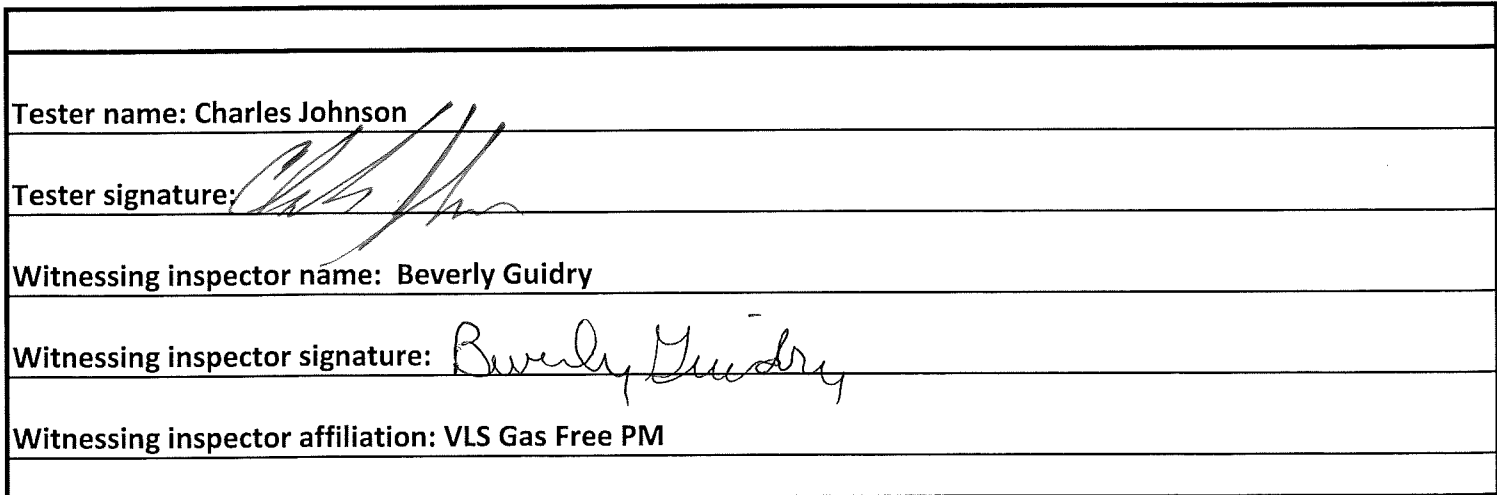 Tester name: Charles Johnson
Tester signature: Charles Johnson
Witnessing inspector name: Beverly Guidry
Witnessing inspector signature: Beverly Guidry
Witnessing inspector affiliation: VLS Gas Free PM